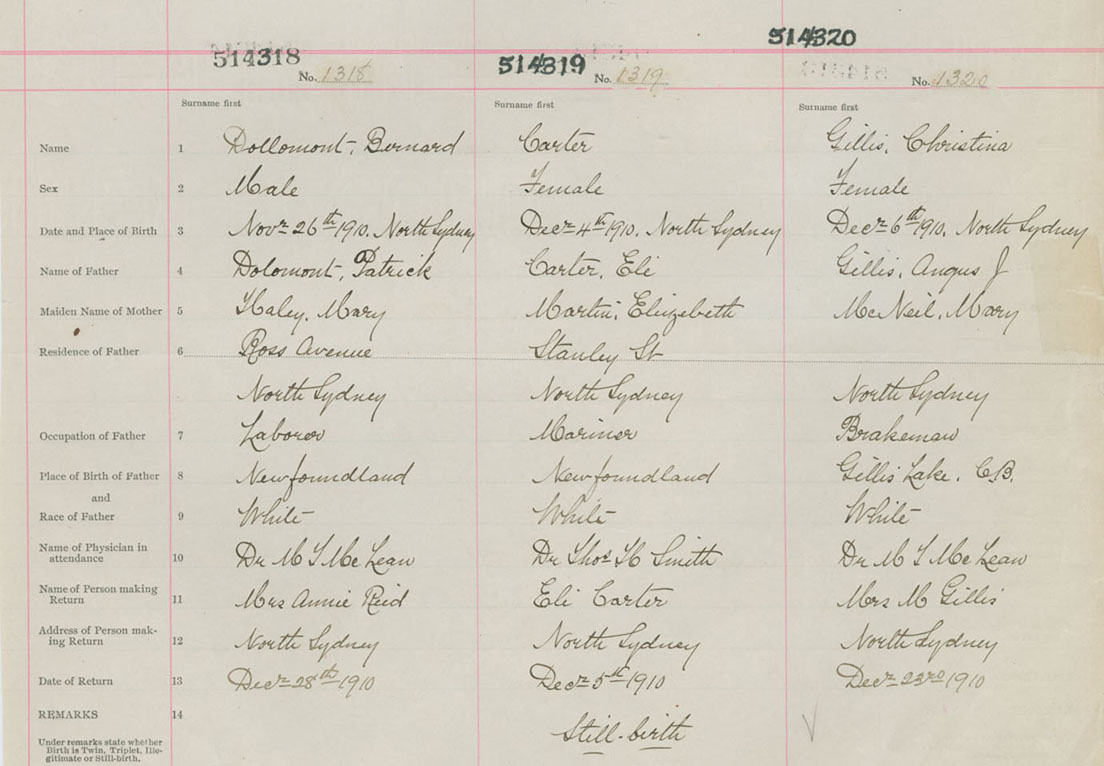 514320
514318
514319
No. 1318
No. 1319
No. 1320
Surname first Surname first Surname first
Name 1 Dollomont, Bernard Carter Gillis, Christina
Sex 2 Male Female Female
Date and Place of Birth 3 Novr 26th 1910. North Sydney Decr 4th 1910. North Sydney Decr 6th 1910. North Sydney
Name of Father 4 Dolomont, Patrick Carter, Eli Gillis, Angus J
Maiden Name of Mother 5 Haley, Mary Martin, Elizebeth McNeil, Mary
Residence of Father 6 Ross Avenue Stanley St
North Sydney North Sydney North Sydney
Occupation of Father 7 Laborer Mariner Brakeman
Place of Birth of Father 8 Newfoundland Newfoundland Gillis Lake. C.B.
and
Race of Father 9 White White White
Name of Physician in
attendance 10 Dr M T McLean Dr Thos H Smith Dr M T McLean
Name of Person making
Return 11 Mrs Annie Reid Eli Carter Mrs M Gillis
Address of Person mak-
ing Return 12 North Sydney North Sydney North Sydney
Date of Return 13 Decr 28th 1910 Decr 5th 1910 Decr 23rd 1910
REMARKS 14 Still-birth
Under remarks state whether
Birth is Twin, Triplet, Ille-
gitimate or Still-birth.